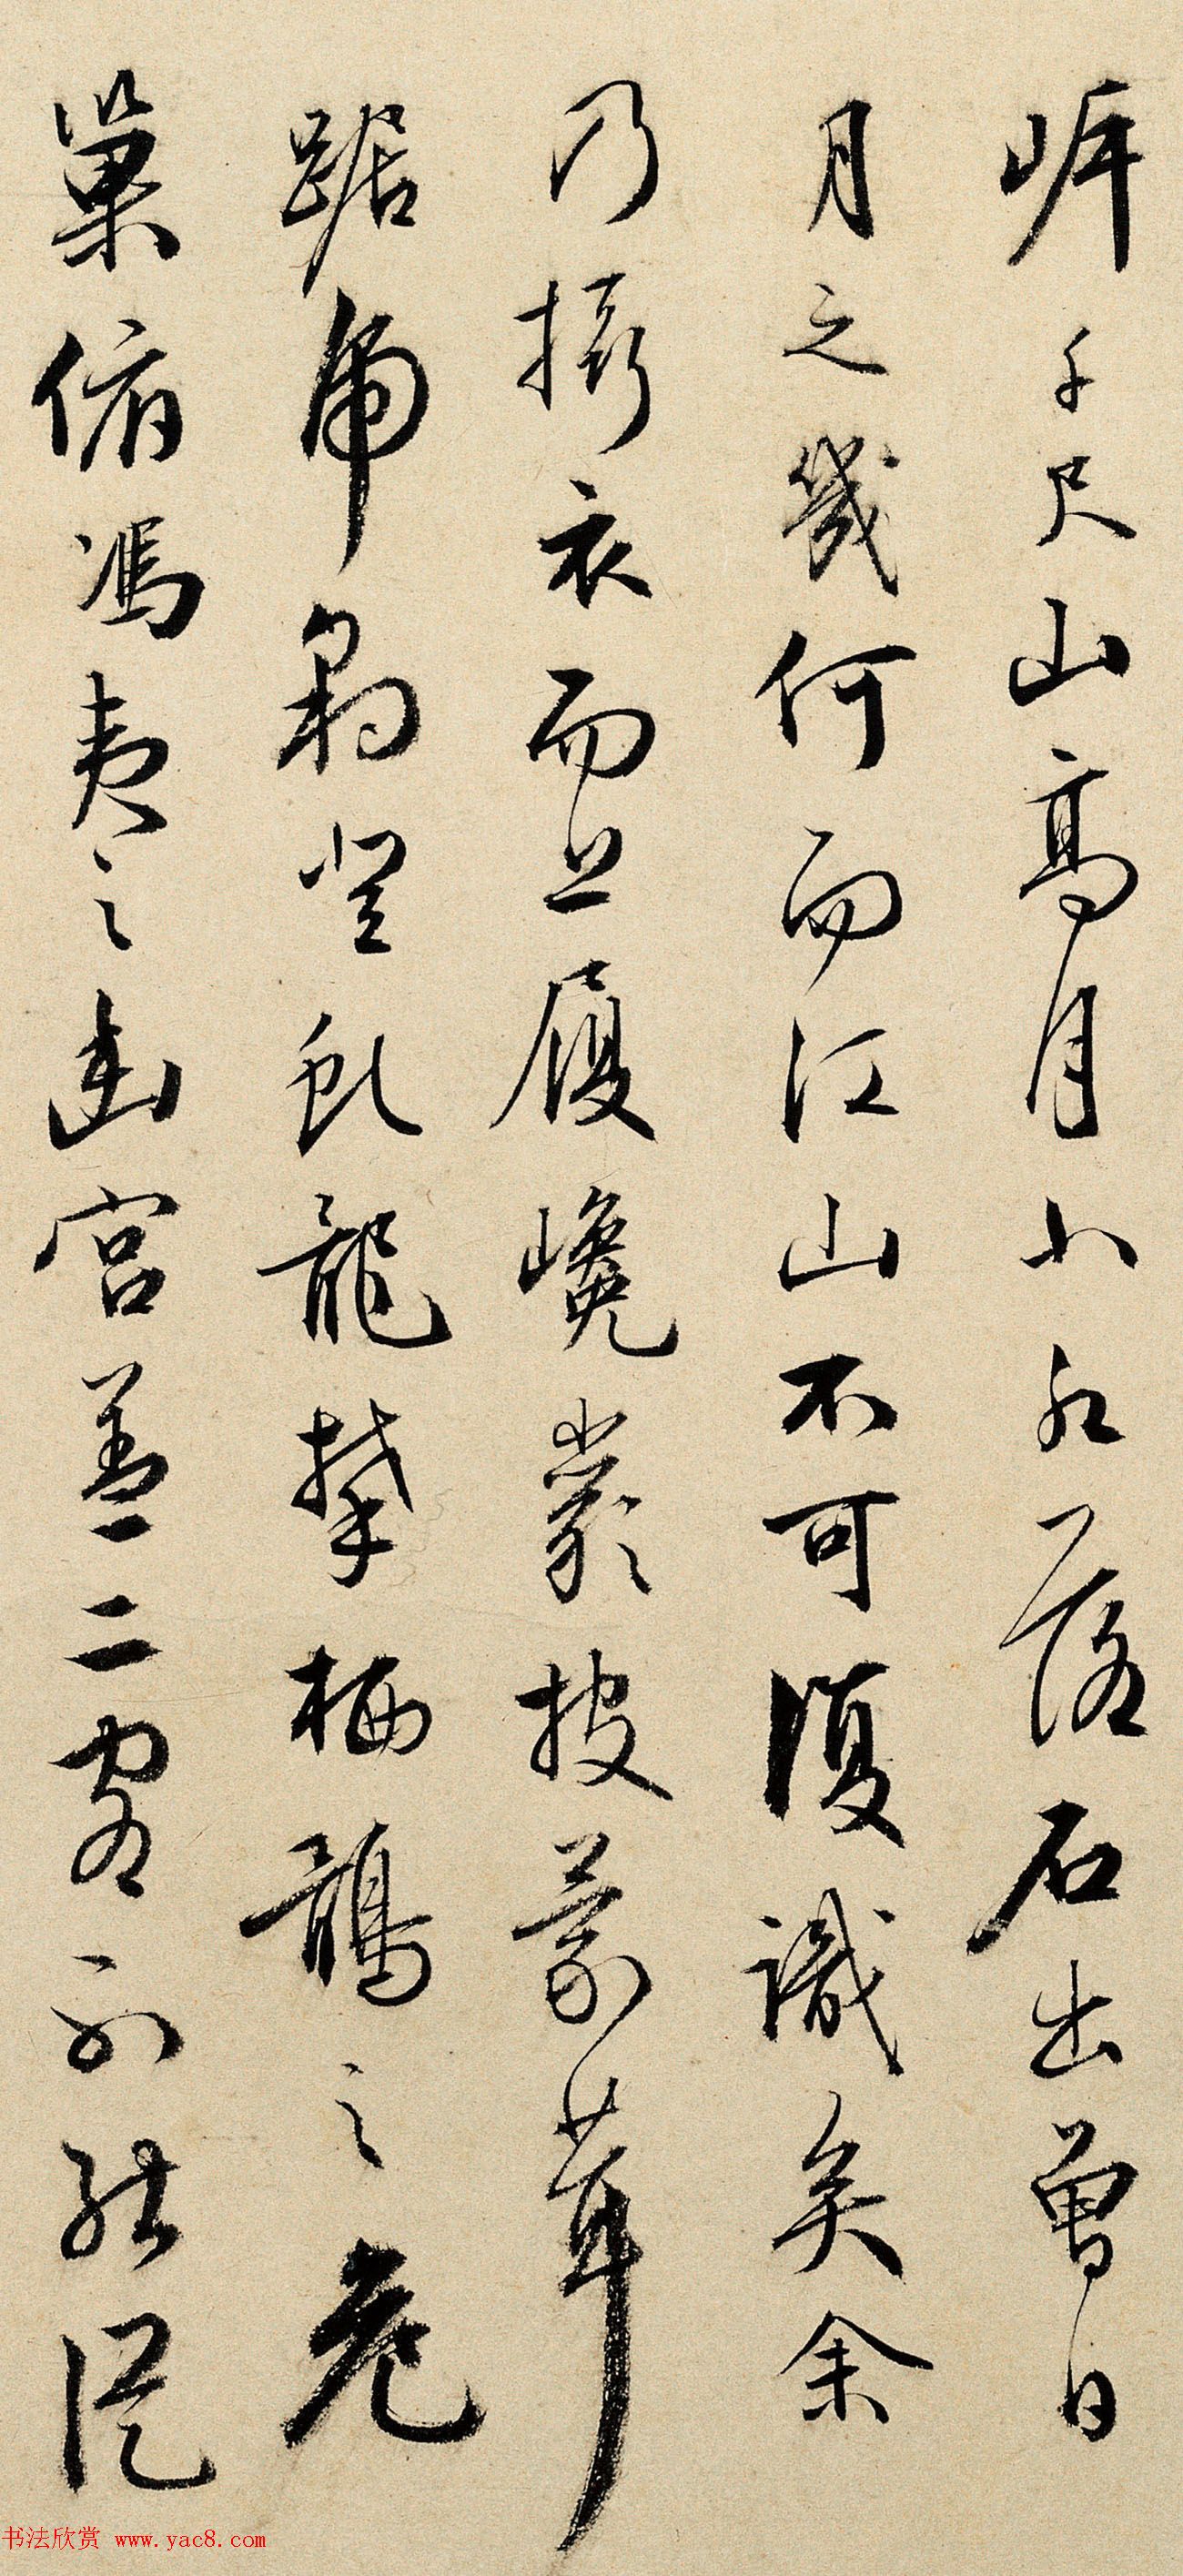 岸千尺山高月小水落石出曾日
月之幾何而江山不可復識矣余
乃攝衣而上履巉巖披蒙茸
踞虎豹登虬龍攀栖鶻之危
巢俯馮夷之幽宮蓋二客不能從
书法欣赏 www.yac8.com